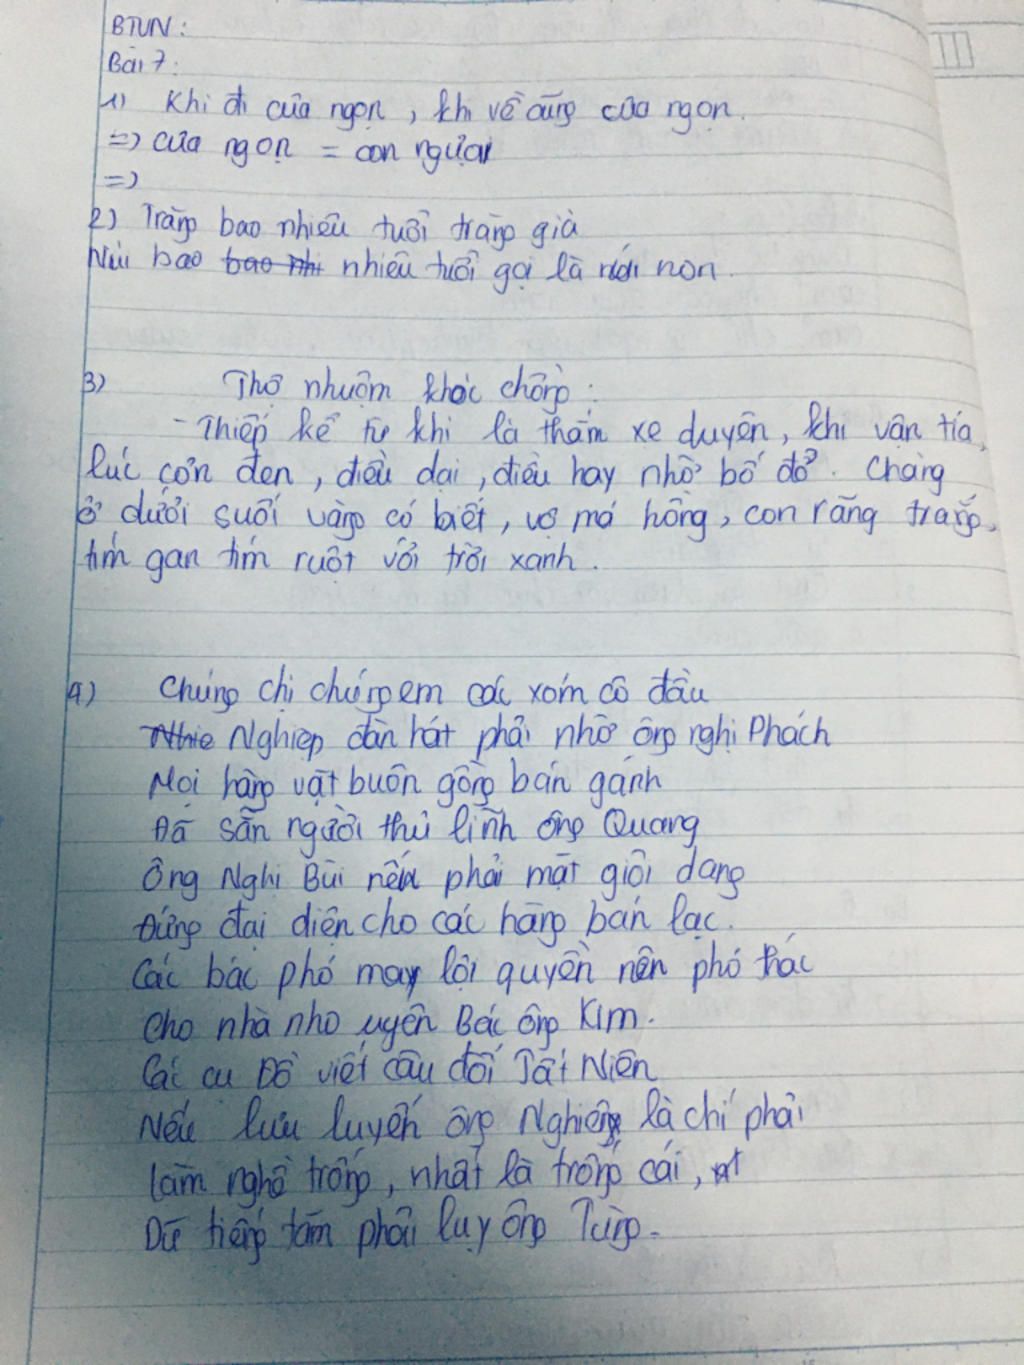 BTVN:
Bài 7:
1) Khi đi cưa ngọn, khi về cũng cưa ngọn.
=> cưa ngọn = con ngựa
=>
2) Trăng bao nhiêu tuổi trăng già
Núi bao bao nhi nhiêu tuổi gọi là núi non.
3) Thợ nhuộm khóc chồng:
- Thiếp kể từ khi lá thắm xe duyên, khi vận tía,
lúc cơn đen, điều dại, điều hay nhờ bố đỏ. Chàng
ở dưới suối vàng có biết, vợ má hồng, con răng trắng,
tím gan tím ruột với trời xanh.
4) Chúng chị chúng em các xóm cô đầu
Nhie Nghiệp đàn hát phải nhờ ông nghị Phách
Mọi hàng vặt buôn gồng bán gánh
Đã sẵn người thủ lĩnh ông Quang
Ông Nghị Bùi nếu phải mặt giỏi dang
Đứng đại diện cho các hàng bán lạc.
Các bác phó may lợi quyền nên phó thác
Cho nhà nho uyên Bác ông Kim.
Các cụ Đồ viết câu đối Tất Niên
Nếu lưu luyến ông Nghiêng là chí phải
Làm nghề trống, nhất là trống cái,
Dữ tiếng tăm phải lụy ông Tùng.